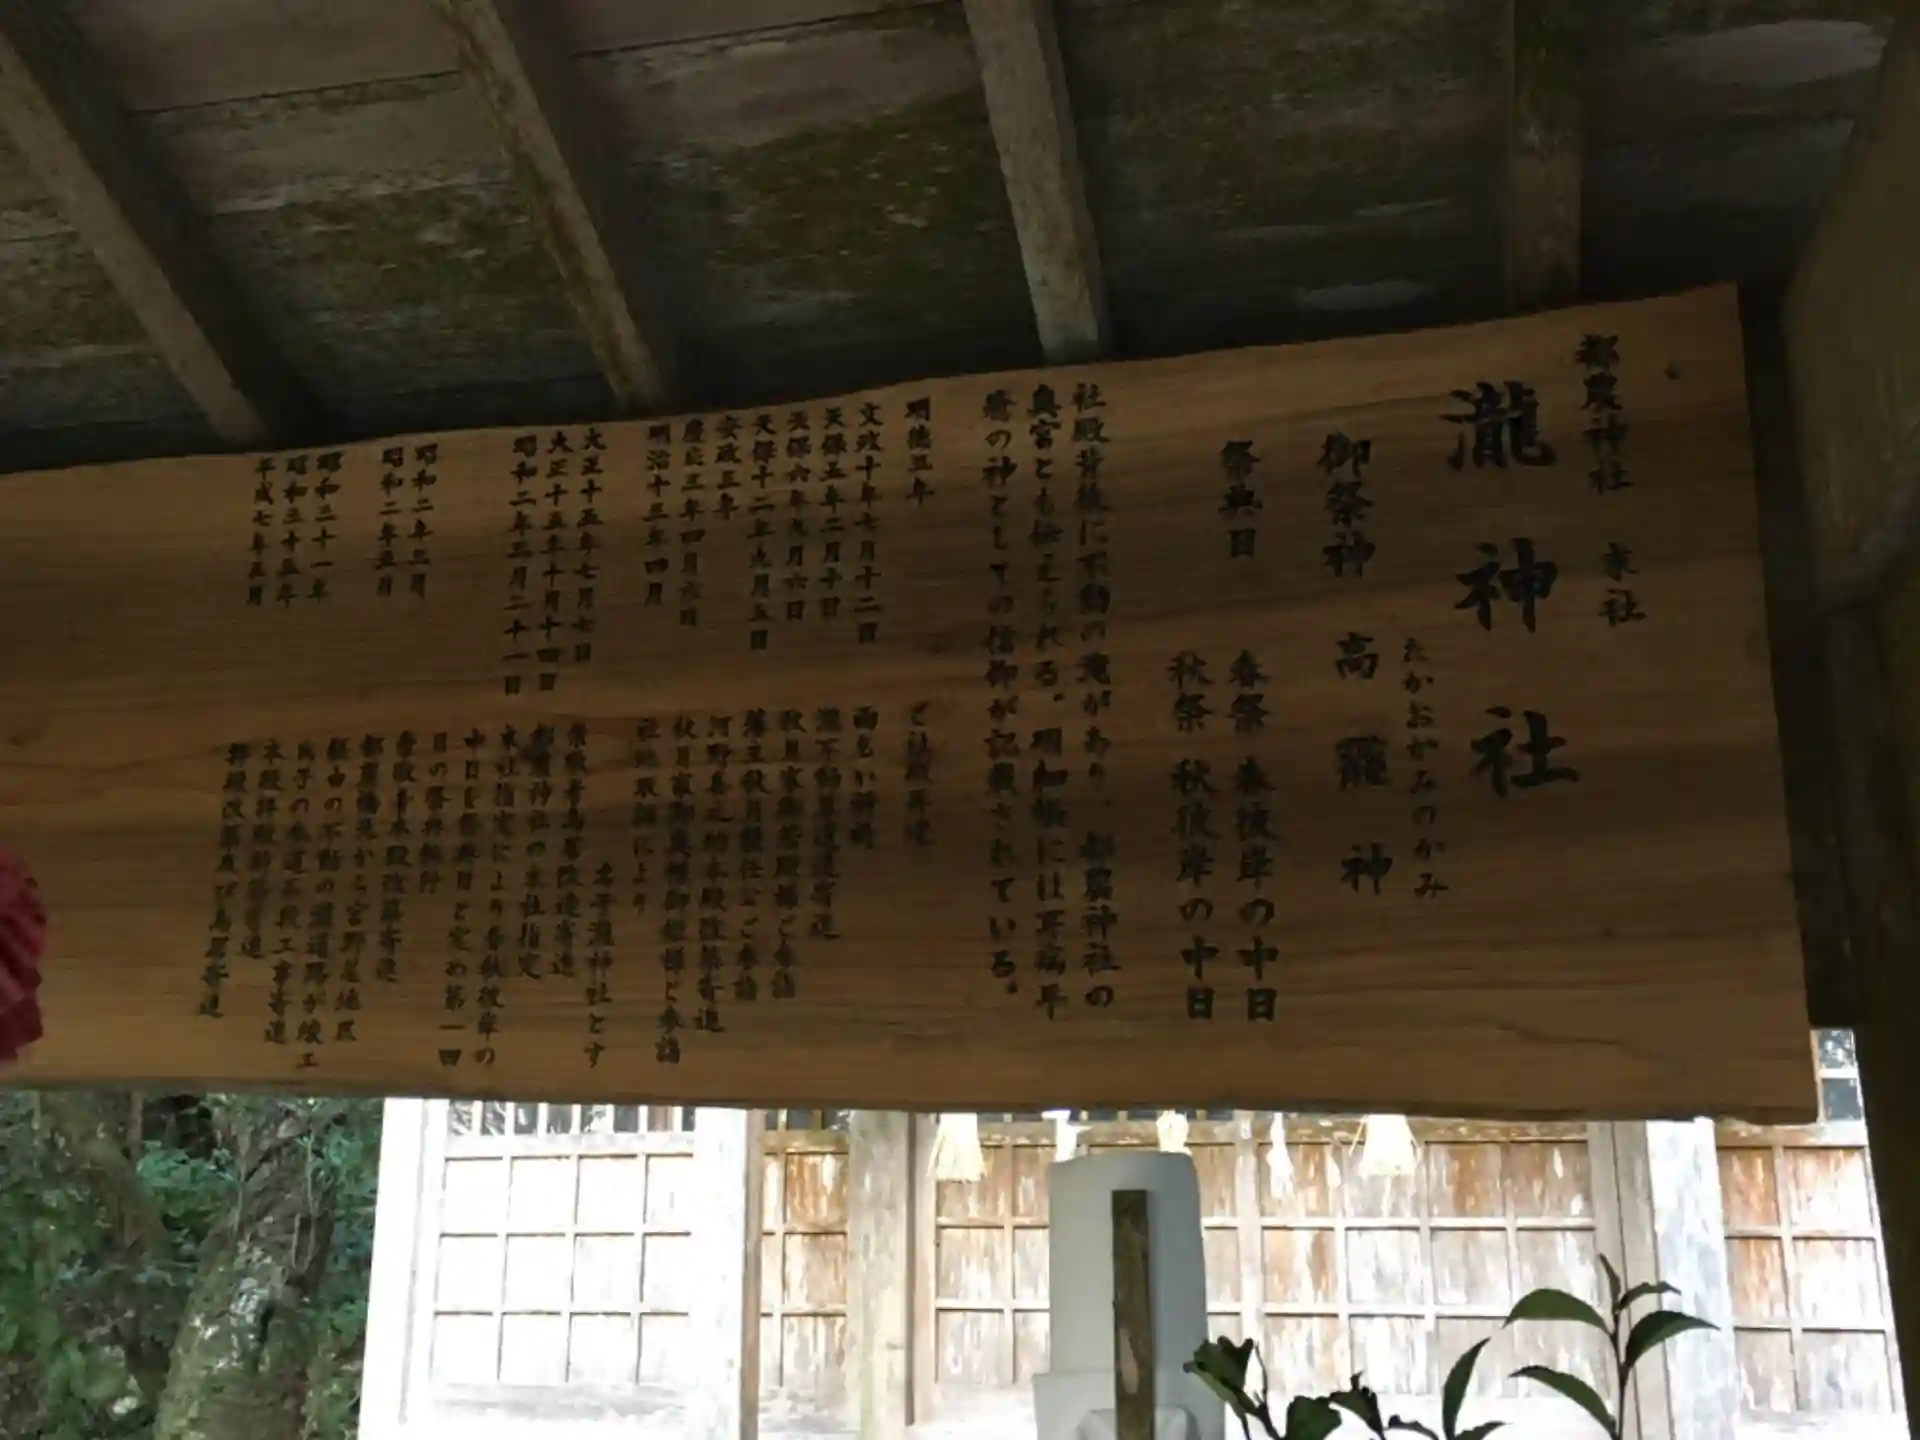 都農神社 末社
瀧神社
たかおかみのかみ
御祭神 高龗神
祭典日
春祭 春彼岸の中日
秋祭 秋彼岸の中日
社殿背後に不動の滝があり、都農神社の
奥宮とも伝えられる。明和帳には耳病平
癒の神としての信仰が記載されている。
明徳五年
文政十年七月十二日 雨乞い祈祷
天保五年二月十日 瀧不動尊道造寄進
天保六年九月六日 秋月家御祭殿様ご参詣
天保十二年九月五日 藩主秋月種任公ご参詣
安政三年 河野喜之助本殿改築寄進
慶応三年四月六日 秋月家御奥様御姫様ご参詣
明治十三年四月 社地取調により
名乎瀧神社とす
大正十五年七月七日
大正十五年十月十四日 都農神社の末社指定
昭和二年三月二十一日 末社指定により春秋彼岸の
中日を祭典日と定め第一回
目の祭典執行
昭和二年三月
昭和二年五月
経由の不動の瀧道路が竣工
昭和三十一年 氏子の参道石段工事寄進
昭和三十五年
平成七年五月 拝殿改築及び鳥居寄進